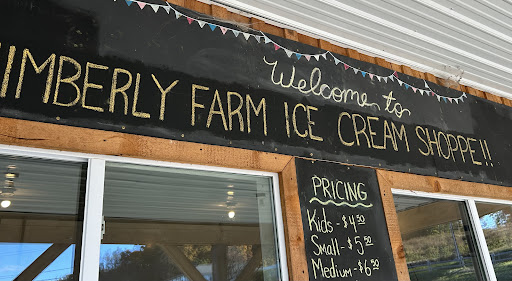 Welcome to
IMBERLY FARM ICE CREAM SHOPPE!!
PRICING
Kids - $4.50
Small - $5.50
Medium - $6.50